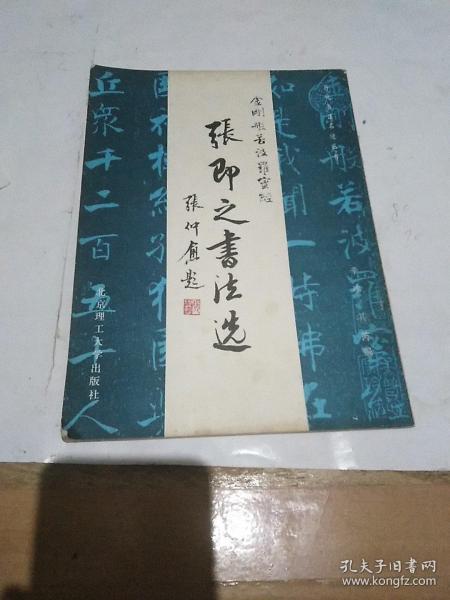 金刚般若波罗蜜经
張即之書法选
張仲愈题
北京理工大学出版社
金剛般若波羅蜜
如是我聞一時佛在
國祇樹給孤獨園
丘眾千二百五十人
孔夫子旧书网
www.kongfz.com